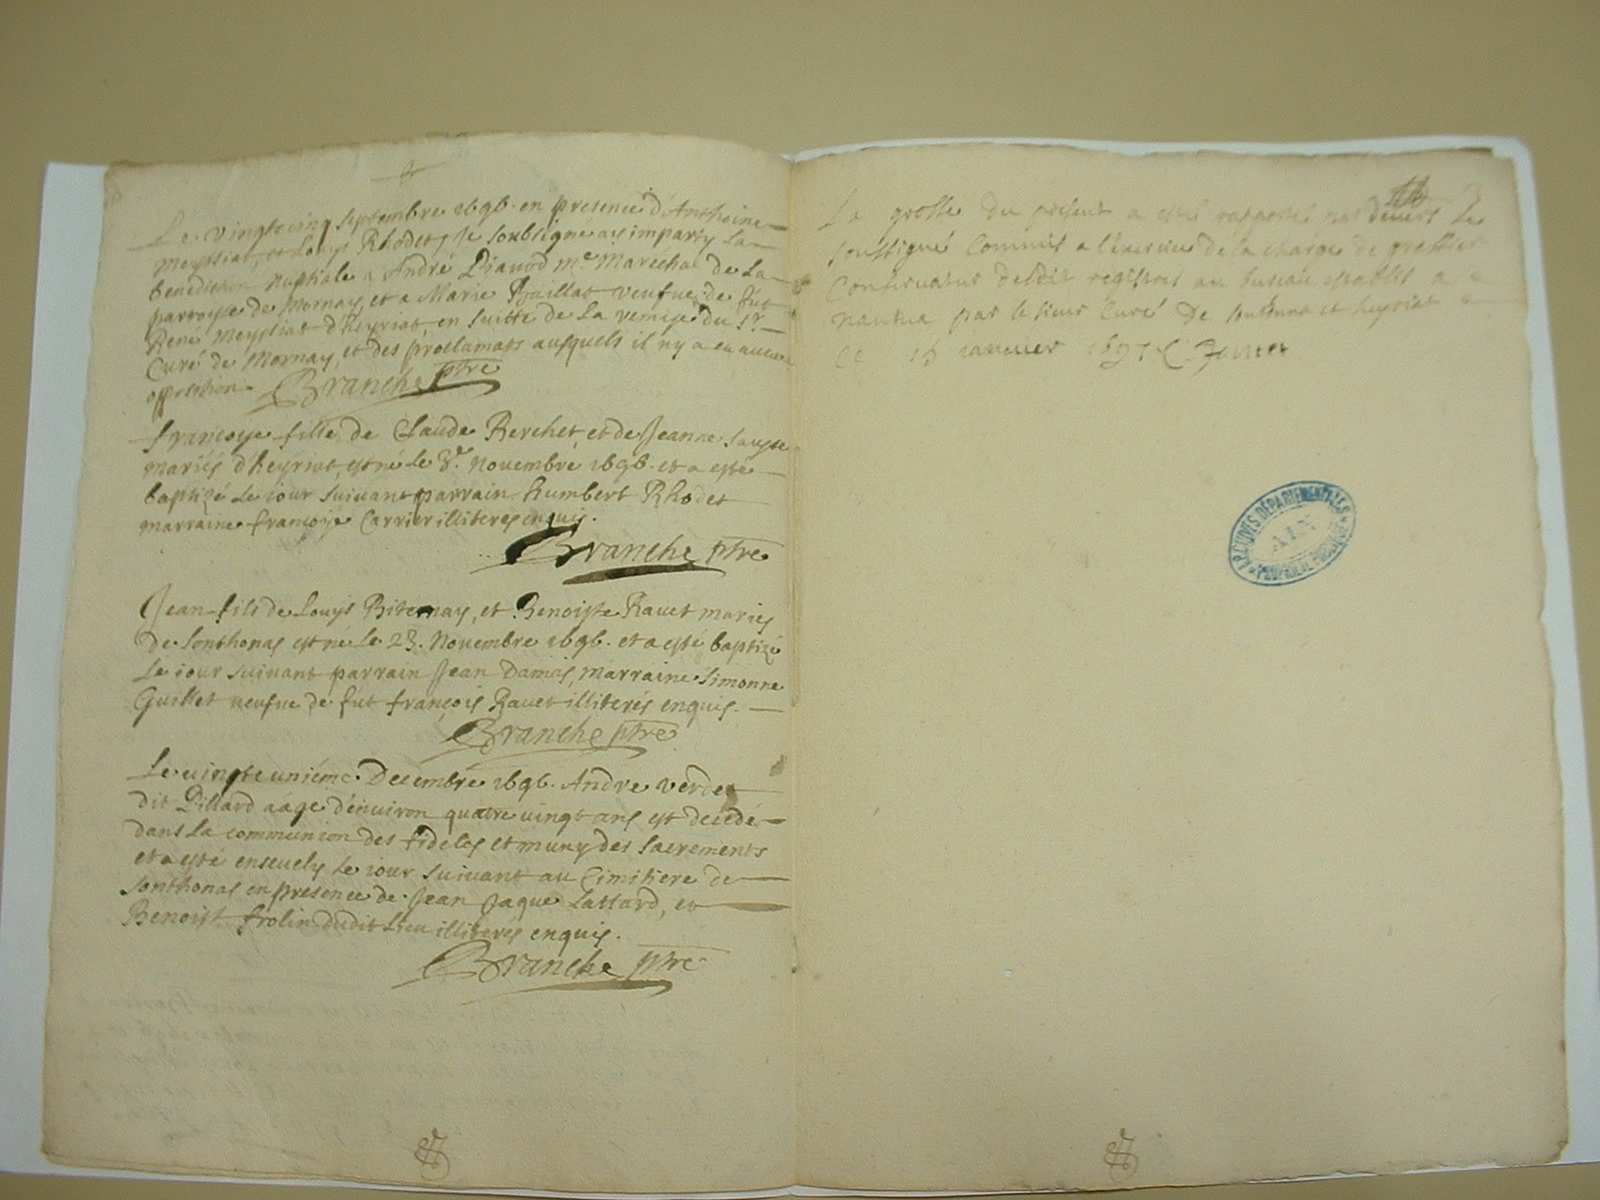 Le vingtcinq septembre 1696. en presence d'Anthoine
Meyssiat, et Louys Rhodet, Je soubsigné ay imparty la
benediction nuptiale a André Pianod me Marechal de la
parroisse de Mornay, et a Marie Pouillat veufue de fut
Rene Meyssiat d'heyriat, en suitte de la remise du Sr
Curé de Mornay, et des proclamats ausquels il ny a eu aucune
opposition. Branche ptre
françoyse fille de Claude Berchet, et de Jeanne
mariés d'heyriat, est né le 8e. Novembre 1696. et a esté
baptizé le iour suivant parrain humbert Rhodet
marraine françoise Carrier illiteres enquis.
Branche ptre
Jean fils de Louys Biternay, et Benoiste Ravet mariés
de Sonthonas est né le 23. Novembre 1696. et a esté baptizé
le iour suivant parrain Jean Damas, Marraine Simonne
Guillet veufue de fut françois Ravet illiterés enquis.
Branche ptre
Le vingtunième Decembre 1696. Andre Verdet
dit Pillard aâgé d'environ quatre vingt ans est decedé
dans la communion des fideles et muny des Sacrements
et a esté ensevely le iour suivant au Cimitiere de
Sonthonas en presence de Jean Jaque Lattard, et
Benoist frolin dudit lieu illiterés enquis.
Branche ptre
La grosse du present a esté rapportée par devers le
soussigné Commis a l'exercice de la charge de greffier
Conservateur desdit registres au bureau establit a
nantua par le sieur Curé de sontonna et heyriat
ce 15 ianvier 1697
ARCHIVES DÉPARTEMENTALES
AIN
PROPRIÉTÉ PUBLIQUE